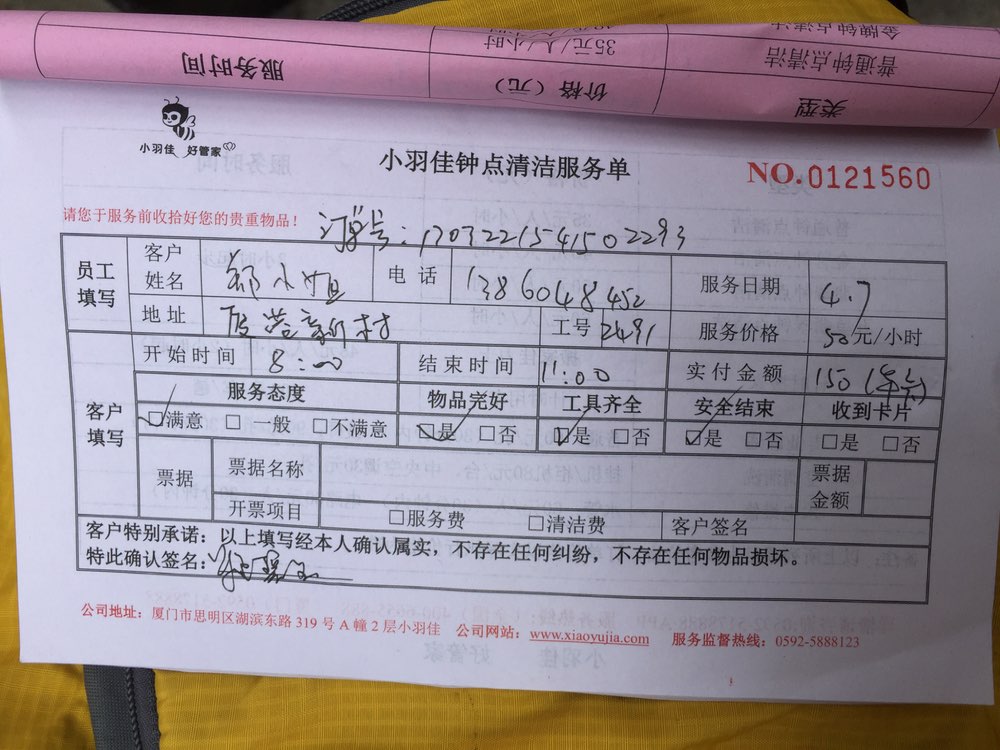 金牌钟点清洁
普通钟点清洁 35元/人/小时
类型 价格（元） 服务时间
小羽佳 好管家
小羽佳钟点清洁服务单
NO.0121560
请您于服务前收拾好您的贵重物品！
订单号：1703221541502293
员工填写 客户姓名 郑小姐 电话 1386048452 服务日期 4.7
地址 新村 工号 2491 服务价格 50元/小时
客户填写 开始时间 8:00 结束时间 11:00 实付金额 150（年卡）
服务态度 物品完好 工具齐全 安全结束 收到卡片
☑满意 □一般 □不满意 ☑是 □否 ☑是 □否 ☑是 □否 □是 □否
票据 票据名称 票据金额
开票项目 □服务费 □清洁费 客户签名
客户特别承诺：以上填写经本人确认属实，不存在任何纠纷，不存在任何物品损坏。
特此确认签名：
公司地址：厦门市思明区湖滨东路 319 号 A 幢 2 层小羽佳 公司网站：www.xiaoyujia.com 服务监督热线：0592-5888123